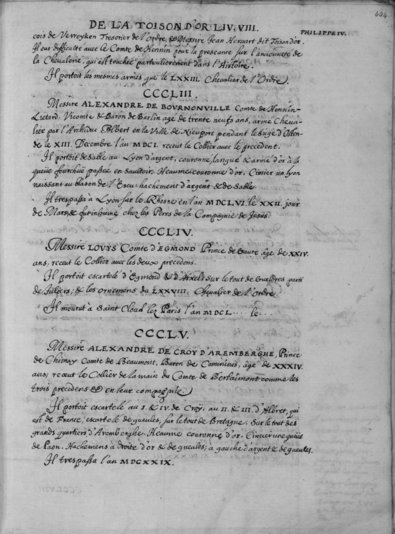 404
DE LA TOISON D'OR LIV. VIII.
PHILIPPE IV.
cois de Verreyken Tresorier de l'ordre, & Messire Jean Hervart dit Toison d'or.
Il eus difficulté avec le Comte de Hennin pour la preseance sur l'ancienneté de
la Chevalerie, qui est touchée particulierement dans l'histoire.
Il portoit les mesmes armes que le LXXIII. Chevalier de l'Ordre.
CCCLIII.
Messire ALEXANDRE DE BOURNONVILLE Comte de Hennin-
Lietard, Vicomte & Baron de Barlin age de trente neufs ans, armé Cheva-
lier par l'Archiduc Albert en la Ville de Nieuport pendant le siege d'Osten-
de le XIII. Decembre l'an MDCI. receut le Collier avec le precedent.
Il portoit de Sable au Lyon d'argent, couronné, langué & armé d'or à la
queüe fourchüe passée en saultoir. Heaume couronné d'or. Cimier un lyon
naissant au blason de l'Escu. hachement d'argent & de Sable.
Il trespassa a Lyon sur le Rhosne en l'an MDCLVI le XXII. jour
de Mars & quit inhumé chez les Peres de la Compagnie de Jesus.
CCCLIV.
Messire LOUYS Comte d'EGMOND Prince de Gavre age de XXIV
ans, receut le Collier avec les deux precedens.
Il portoit escartelé d'Egmond & d'Arkel sur le tout de Gueldres parti
de Julliers; & les ornemens du LXXVIII. Chevalier de l'Ordre.
Il mourut à Saint Cloud lez Paris l'an MDCL.... le....
CCCLV.
Messire ALEXANDRE DE CROY D'AREMBERGHE, Prince
de Chimay Comte de Beaumont, Baron de Comminnes, âge de XXXIV
ans; receut le Collier de la main du Comte de Berlaimont comme les
trois precedens & en leur compagnie.
Il portoit escartelé au I & IV de Croy, au II. & III. d'Albret, qui
est de France, escartelé de gueules, sur le tout de Bretagne. Sur le tout des
grands quartiers d'Aremberghe. Heaume couronné d'or. Cimier une queüe
de Paon. Hachemens à droite d'or & de gueules, à gauche d'argent & de gueules.
Il trespassa l'an MDCXXIX.